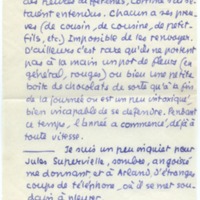 ces heures différentes, comme s'ils s'é-
taient entendus. Chacun a ses preu-
ves (de cousin, de cousine, de petit-
fils, etc.) Impossible de les renvoyer.
D'ailleurs c'est rare qu'ils ne portent
pas à la main un pot de fleurs (en
général, rouges) ou bien une petite
boîte de chocolats de sorte qu'à la fin
de la journée on est un peu intoxiqué,
bien incapable de se défendre. Pendant
ce temps, l'année a commencé, déjà à
toute vitesse.
Je suis un peu inquiet pour
Jules Supervielle, sombre, angoissé
me donnant et à Arland, d'étranges
coups de téléphone, où il se met sou-
dain à pleurer.